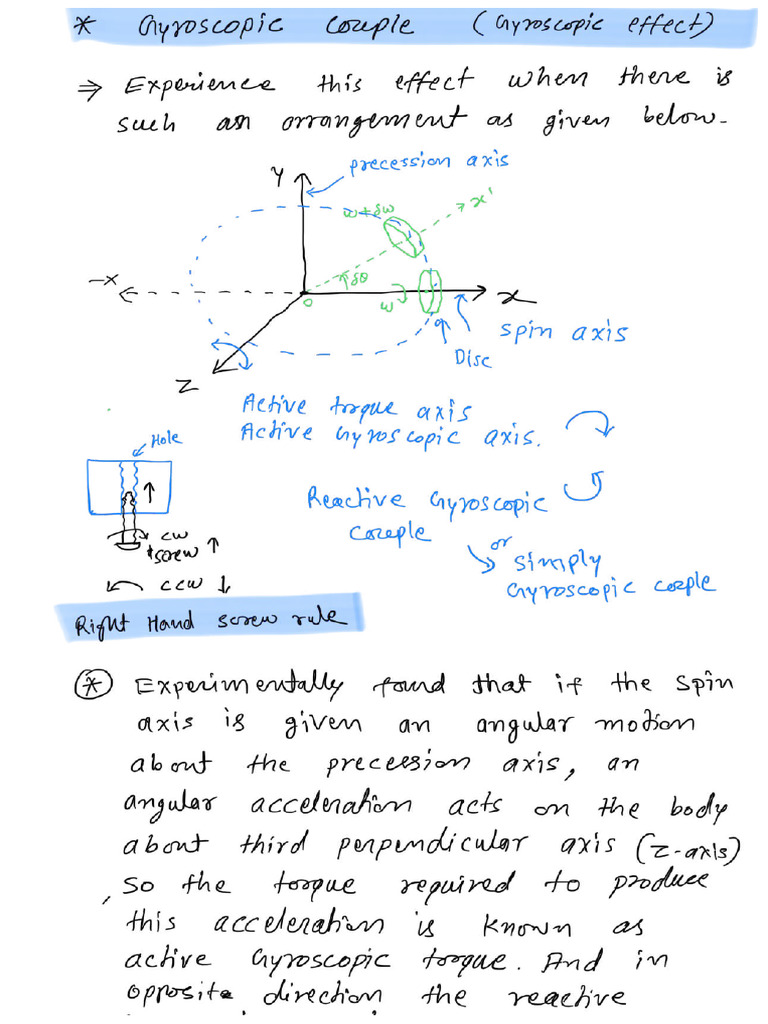 * Gyroscopic couple (Gyroscopic effect)
⇒ Experience this effect when there is
such an arrangement as given below.
precession axis
Y
x'
ω+δω
δθ
-x
o
ω
x
spin axis
Disc
Z
Active torque axis
Active Gyroscopic axis.
Hole
Reactive Gyroscopic
couple
or
simply
Gyroscopic couple
cw
screw ↑
ccw ↓
Right Hand screw rule
* Experimentally found that if the spin
axis is given an angular motion
about the precession axis, an
angular acceleration acts on the body
about third perpendicular axis (z-axis)
, so the torque required to produce
this acceleration is known as
active Gyroscopic torque. And in
opposite direction the reactive